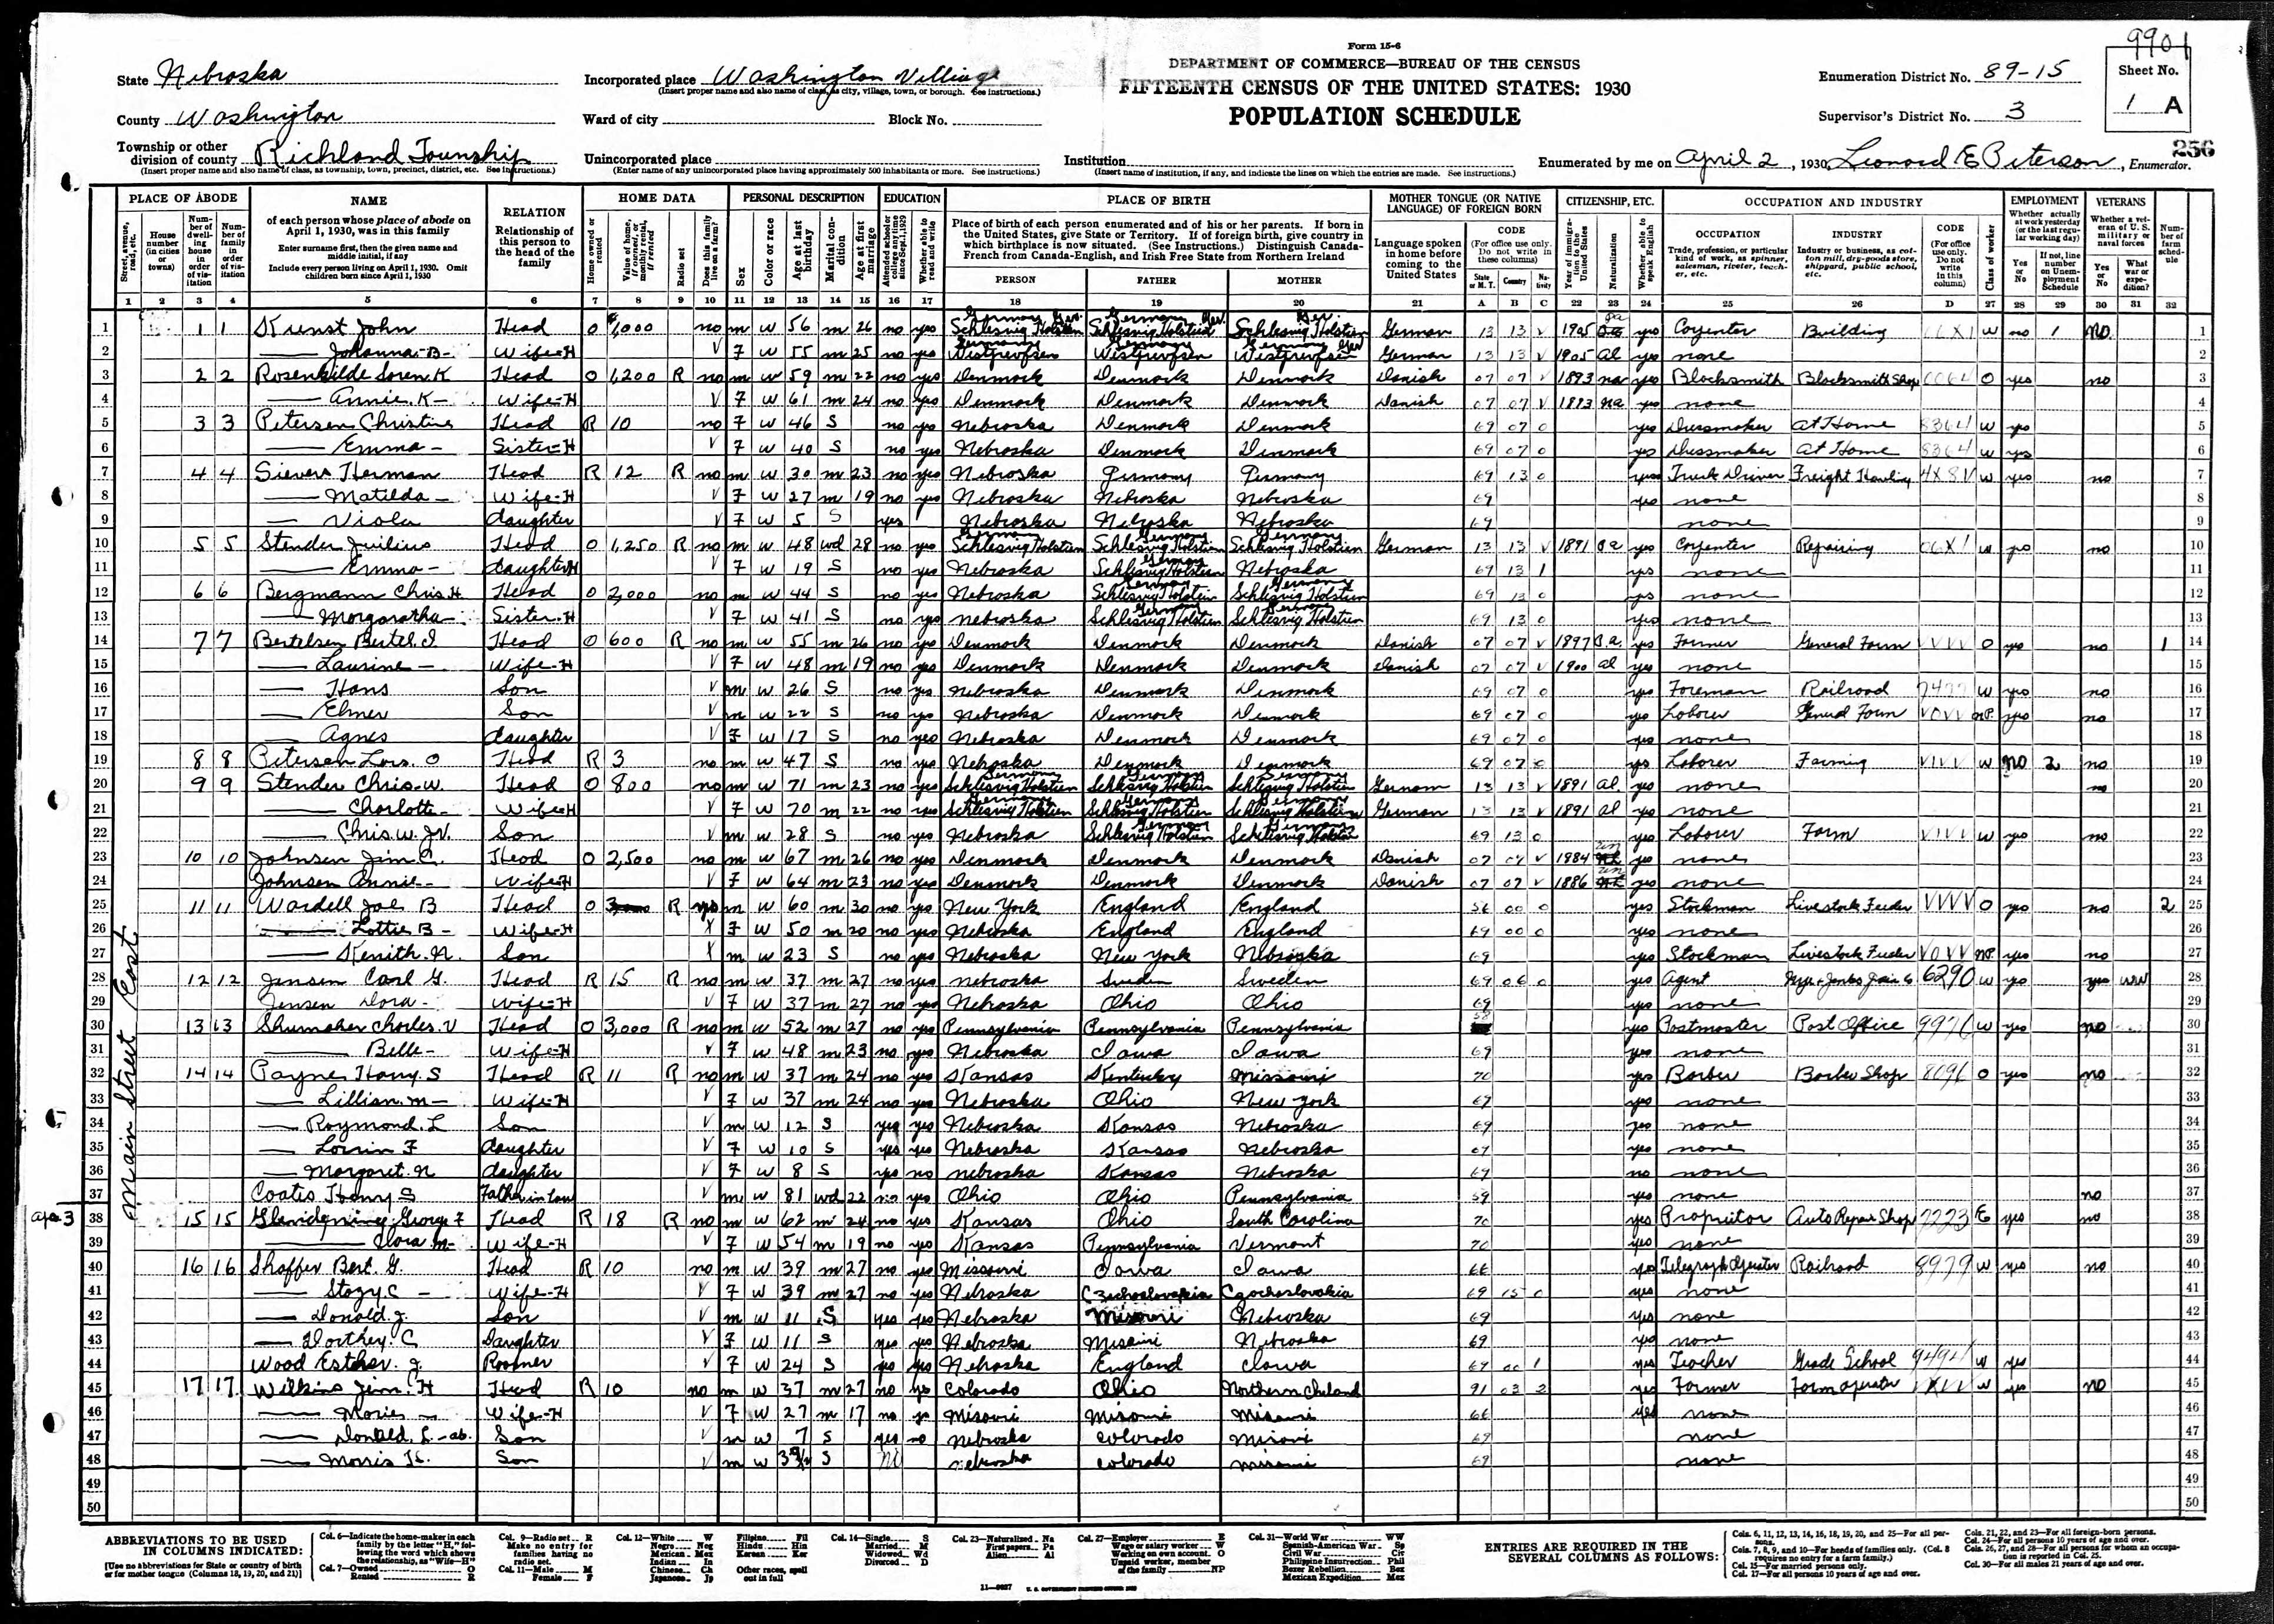 9901
Form 15-6
State Nebraska
Incorporated place Washington Village
(Insert proper name and also name of class, as city, village, town, or borough. See instructions.)
DEPARTMENT OF COMMERCE—BUREAU OF THE CENSUS
FIFTEENTH CENSUS OF THE UNITED STATES: 1930
POPULATION SCHEDULE
Enumeration District No. 89-15
Sheet No.
1 A
County Washington
Ward of city Block No.
Supervisor's District No. 3
256
Township or other division of county Richland Township
(Insert proper name and also name of class, as township, town, precinct, district, etc. See instructions.)
Unincorporated place
(Enter name of any unincorporated place having approximately 500 inhabitants or more. See instructions.)
Institution
(Insert name of institution, if any, and indicate the lines on which the entries are made. See instructions.)
Enumerated by me on April 2, 1930, Leonard E Peterson, Enumerator.
PLACE OF ABODE NAME RELATION HOME DATA PERSONAL DESCRIPTION EDUCATION PLACE OF BIRTH MOTHER TONGUE (OR NATIVE LANGUAGE) OF FOREIGN BORN CITIZENSHIP, ETC. OCCUPATION AND INDUSTRY EMPLOYMENT VETERANS
PERSON FATHER MOTHER
1 2 3 4 5 6 7 8 9 10 11 12 13 14 15 16 17 18 19 20 21 A B C 22 23 24 25 26 D 27 28 29 30 31 32
Main Street East
1 1 1 Kunst John Head O 1,000 no m w 56 m 26 no yes Germany Schlesvig Holstein Germany Schlesvig Holstein Ger. Schlesvig Holstein German 13 13 V 1905 yes Carpenter Building W no 1 no 1
2 — Johanna B — Wife-H V F W 55 m 25 no yes Germany Germany Germany German 13 13 V 1905 al yes none 2
3 2 2 Rosenkilde Soren K Head O 1,200 R no m w 59 m 22 no yes Denmark Denmark Denmark Danish 07 07 V 1893 na yes Blacksmith Blacksmith Shop O yes no 3
4 — Annie K — Wife-H V F W 61 m 24 no yes Denmark Denmark Denmark Danish 07 07 V 1893 na yes none 4
5 3 3 Petersen Christine Head R 10 no F W 46 S no yes Nebraska Denmark Denmark 69 07 0 yes Dressmaker At Home W yes 5
6 — Emma — Sister-H V F W 40 S no yes Nebraska Denmark Denmark 69 07 0 yes Dressmaker At Home W yes 6
7 4 4 Sievers Herman Head R 12 R no m w 30 m 23 no yes Nebraska Germany Germany 69 13 0 yes Truck Driver Freight Hauling 4X8V W yes no 7
8 — Matilda — Wife-H V F W 27 m 19 no yes Nebraska Nebraska Nebraska 69 yes none 8
9 — Viola daughter V F W 5 S yes Nebraska Nebraska Nebraska 69 none 9
10 5 5 Stender Juilius Head O 1,250 R no m w 48 wd 28 no yes Germany Schlesvig Holstein Germany Schlesvig Holstein Germany Schlesvig Holstein German 13 13 V 1891 yes Carpenter Repairing W yes no 10
11 — Emma — daughter H V F W 19 S no yes Nebraska Germany Schlesvig Holstein Nebraska 69 13 1 yes none 11
12 6 6 Bergmann Chris H Head O 2,000 no m w 44 S no yes Nebraska German Schlesvig Holstein Germany Schlesvig Holstein 69 13 0 yes none 12
13 — Morgaratha Sister-H V F W 41 S no yes nebraska German Schlesvig Holstein German Schlesvig Holstein 69 13 0 yes none 13
14 7 7 Bertelsen Bertel I Head O 600 R no m w 55 m 26 no yes Denmark Denmark Denmark Danish 07 07 V 1897 yes Farmer General Farm VVVV O yes no 1 14
15 — Laurine — Wife-H V F W 48 m 19 no yes Denmark Denmark Denmark Danish 07 07 V 1900 al yes none 15
16 — Hans Son V m w 26 S no yes Nebraska Denmark Denmark 69 07 0 yes Foreman Railroad W yes no 16
17 — Elmer Son V m w 22 S no yes Nebraska Denmark Denmark 69 07 0 yes Laborer General Farm VOVV NP yes no 17
18 — Agnes daughter V F W 17 S no yes Nebraska Denmark Denmark 69 07 0 yes none 18
19 8 8 Petersen Lars O Head R 3 no m w 47 S no yes Nebraska Denmark Denmark 69 07 0 yes Laborer Farming VIVV W no 2 no 19
20 9 9 Stender Chris W. Head O 800 no m w 71 m 23 no yes Germany Schlesvig Holstein Germany Schlesvig Holstein Germany Schlesvig Holstein German 13 13 V 1891 al yes none no 20
21 — Charlotte — Wife H V F W 70 m 22 no yes Germany Schlesvig Holstein Germany Schlesvig Holstein Germany Schlesvig Holstein German 13 13 V 1891 al yes none 21
22 — Chris. W. Jr. Son V m w 28 S no yes Nebraska German Schlesvig Holstein German Schlesvig Holstein 69 13 0 yes Laborer Farm VIVV W yes no 22
23 10 10 Johnsen Jim C. Head O 2,500 no m w 67 m 26 no yes Denmark Denmark Denmark Danish 07 07 V 1984 un yes none 23
24 Johnsen Annie — Wife-H V F W 64 m 23 no yes Denmark Denmark Denmark Danish 07 07 V 1886 un yes none 24
25 11 11 Wardell Joe B Head O 3,000 R yes m w 60 m 30 no yes New York England England 56 00 0 yes Stockman Livestock Feeder VVVV O yes no 2 25
26 — Lottie B — Wife-H X F W 50 m 20 no yes Nebraska England England 69 00 0 yes none 26
27 — Kenith. N. Son X m w 23 S no yes Nebraska New York Nebraska 69 yes Stockman Livestock Feeder VOVV NP yes no 27
28 12 12 Jensen Carl G. Head R 15 R no m w 37 m 27 no yes nebraska Sweden Sweden 69 06 0 yes Agent 6290 W yes yes WW 28
29 Jensen Dora — Wife-H V F W 37 m 27 no yes Nebraska Ohio Ohio 69 yes none 29
30 13 13 Shumaker Charles. V Head O 3,000 R no m w 52 m 27 no yes Pennsylvania Pennsylvania Pennsylvania 58 yes Postmaster Post Office 9976 W yes no 30
31 — Belle — Wife-H V F W 48 m 23 no yes Nebraska Iowa Iowa 69 yes none 31
32 14 14 Payne Harry. S Head R 11 R no m w 37 m 24 no yes Kansas Kentucky Missouri 70 yes Barber Barber Shop 8096 O yes no 32
33 — Lillian. M — Wife-H V F W 37 m 24 no yes Nebraska Ohio New York 69 yes none 33
34 — Raymond. L Son V m w 12 S yes yes Nebraska Kansas Nebraska 69 yes none 34
35 — Lorrin F daughter V F W 10 S yes yes Nebraska Kansas Nebraska 69 yes none 35
36 — Margaret. N daughter V F W 8 S yes no nebraska Kansas Nebraska 69 no none 36
37 Coates Henry S Father in law V m w 81 wd 22 no yes Ohio Ohio Pennsylvania 59 yes none no 37
apr 3 38 15 15 Glenidgning George F Head R 18 R no m w 62 m 24 no yes Kansas Ohio South Carolina 70 yes Proprietor Auto Repair Shop 7223 E yes no 38
39 — Clara M — Wife-H V F W 54 m 19 no yes Kansas Pennsylvania Vermont 70 yes none 39
40 16 16 Shaffer Bert. G. Head R 10 no m w 39 m 27 no yes Missouri Iowa Iowa 66 yes Telegraph Operator Railroad 8979 W yes no 40
41 — Stazy C — Wife-H V F W 39 m 27 no yes Nebraska Czechoslovakia Czechoslovakia 69 15 0 yes none 41
42 — Donald. J. Son V m w 11 S yes yes Nebraska Missouri Nebraska 69 yes none 42
43 — Dorthey. C Daughter V F W 11 S yes yes Nebraska Missouri Nebraska 69 yes none 43
44 Wood Esther. J. Roomer V F W 24 S yes yes Nebraska England Iowa 69 00 1 yes Teacher Grade School 9494 W yes 44
45 17 17 Wilkins Jim. H Head R 10 no m w 37 m 27 no yes Colorado Ohio Northern Ireland 91 03 2 yes Farmer Farm operator W yes no 45
46 — Marie — Wife-H V F W 27 m 17 no yes Misouri Misouri Misouri 66 yes none 46
47 — Donald. L — ab. Son V m w 7 S yes no Nebraska Colorado Misouri 69 none 47
48 — Morris K. Son V m w S nebraska Colorado Misouri 69 none 48
49 49
50 50
ABBREVIATIONS TO BE USED IN COLUMNS INDICATED:
[Use no abbreviations for State or country of birth or for mother tongue (Columns 18, 19, 20, and 21)]
Col. 6—Indicate the home-maker in each family by the letter "H," following the word which shows the relationship, as "Wife—H"
Col. 7—Owned O Rented R
Col. 9—Radio set R Make no entry for families having no radio set.
Col. 11—Male M Female F
Col. 12—White W Negro Neg Mexican Mex Indian In Chinese Ch Japanese Jp
Filipino Fil Hindu Hin Korean Kor Other races, spell out in full
Col. 14—Single S Married M Widowed Wd Divorced D
Col. 23—Naturalized Na First papers Pa Alien Al
Col. 27—Employer E Wage or salary worker W Working on own account O Unpaid worker, member of the family NP
Col. 31—World War WW Spanish-American War Sp Civil War Civ Philippine Insurrection Phil Boxer Rebellion Box Mexican Expedition Mex
ENTRIES ARE REQUIRED IN THE SEVERAL COLUMNS AS FOLLOWS:
Cols. 6, 11, 12, 13, 14, 16, 18, 19, 20, and 25—For all persons.
Cols. 7, 8, 9, and 10—For heads of families only. (Col. 8 requires no entry for a farm family.)
Col. 15—For married persons only.
Col. 17—For all persons 10 years of age and over.
Cols. 21, 22, and 23—For all foreign-born persons.
Col. 24—For all persons 10 years of age and over.
Cols. 26, 27, and 28—For all persons for whom an occupation is reported in Col. 25.
Col. 30—For all males 21 years of age and over.